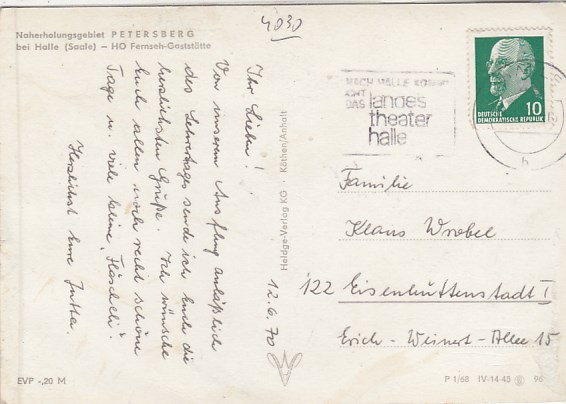 4030
Naherholungsgebiet PETERSBERG
bei Halle (Saale) – HO Fernseh-Gaststätte
12.6.70
Ihr Lieben!
Von unserem Ausflug anläßlich
des Lehrertages sende ich Euch die
herzlichsten Grüße. Ich wünsche
Euch allen noch recht schöne
Tage u. viele keine
Herzlichst Eure Jutta.
EVP -,20 M
Heldge-Verlag KG · Köthen/Anhalt
NACH HALLE
DAS landes
theater
halle
10
DEUTSCHE
DEMOKRATISCHE REPUBLIK
Familie
Klaus Wrobel
122 Eisenhüttenstadt I
Erich-Weinert-Allee 15
P 1/68 IV-14-45 96